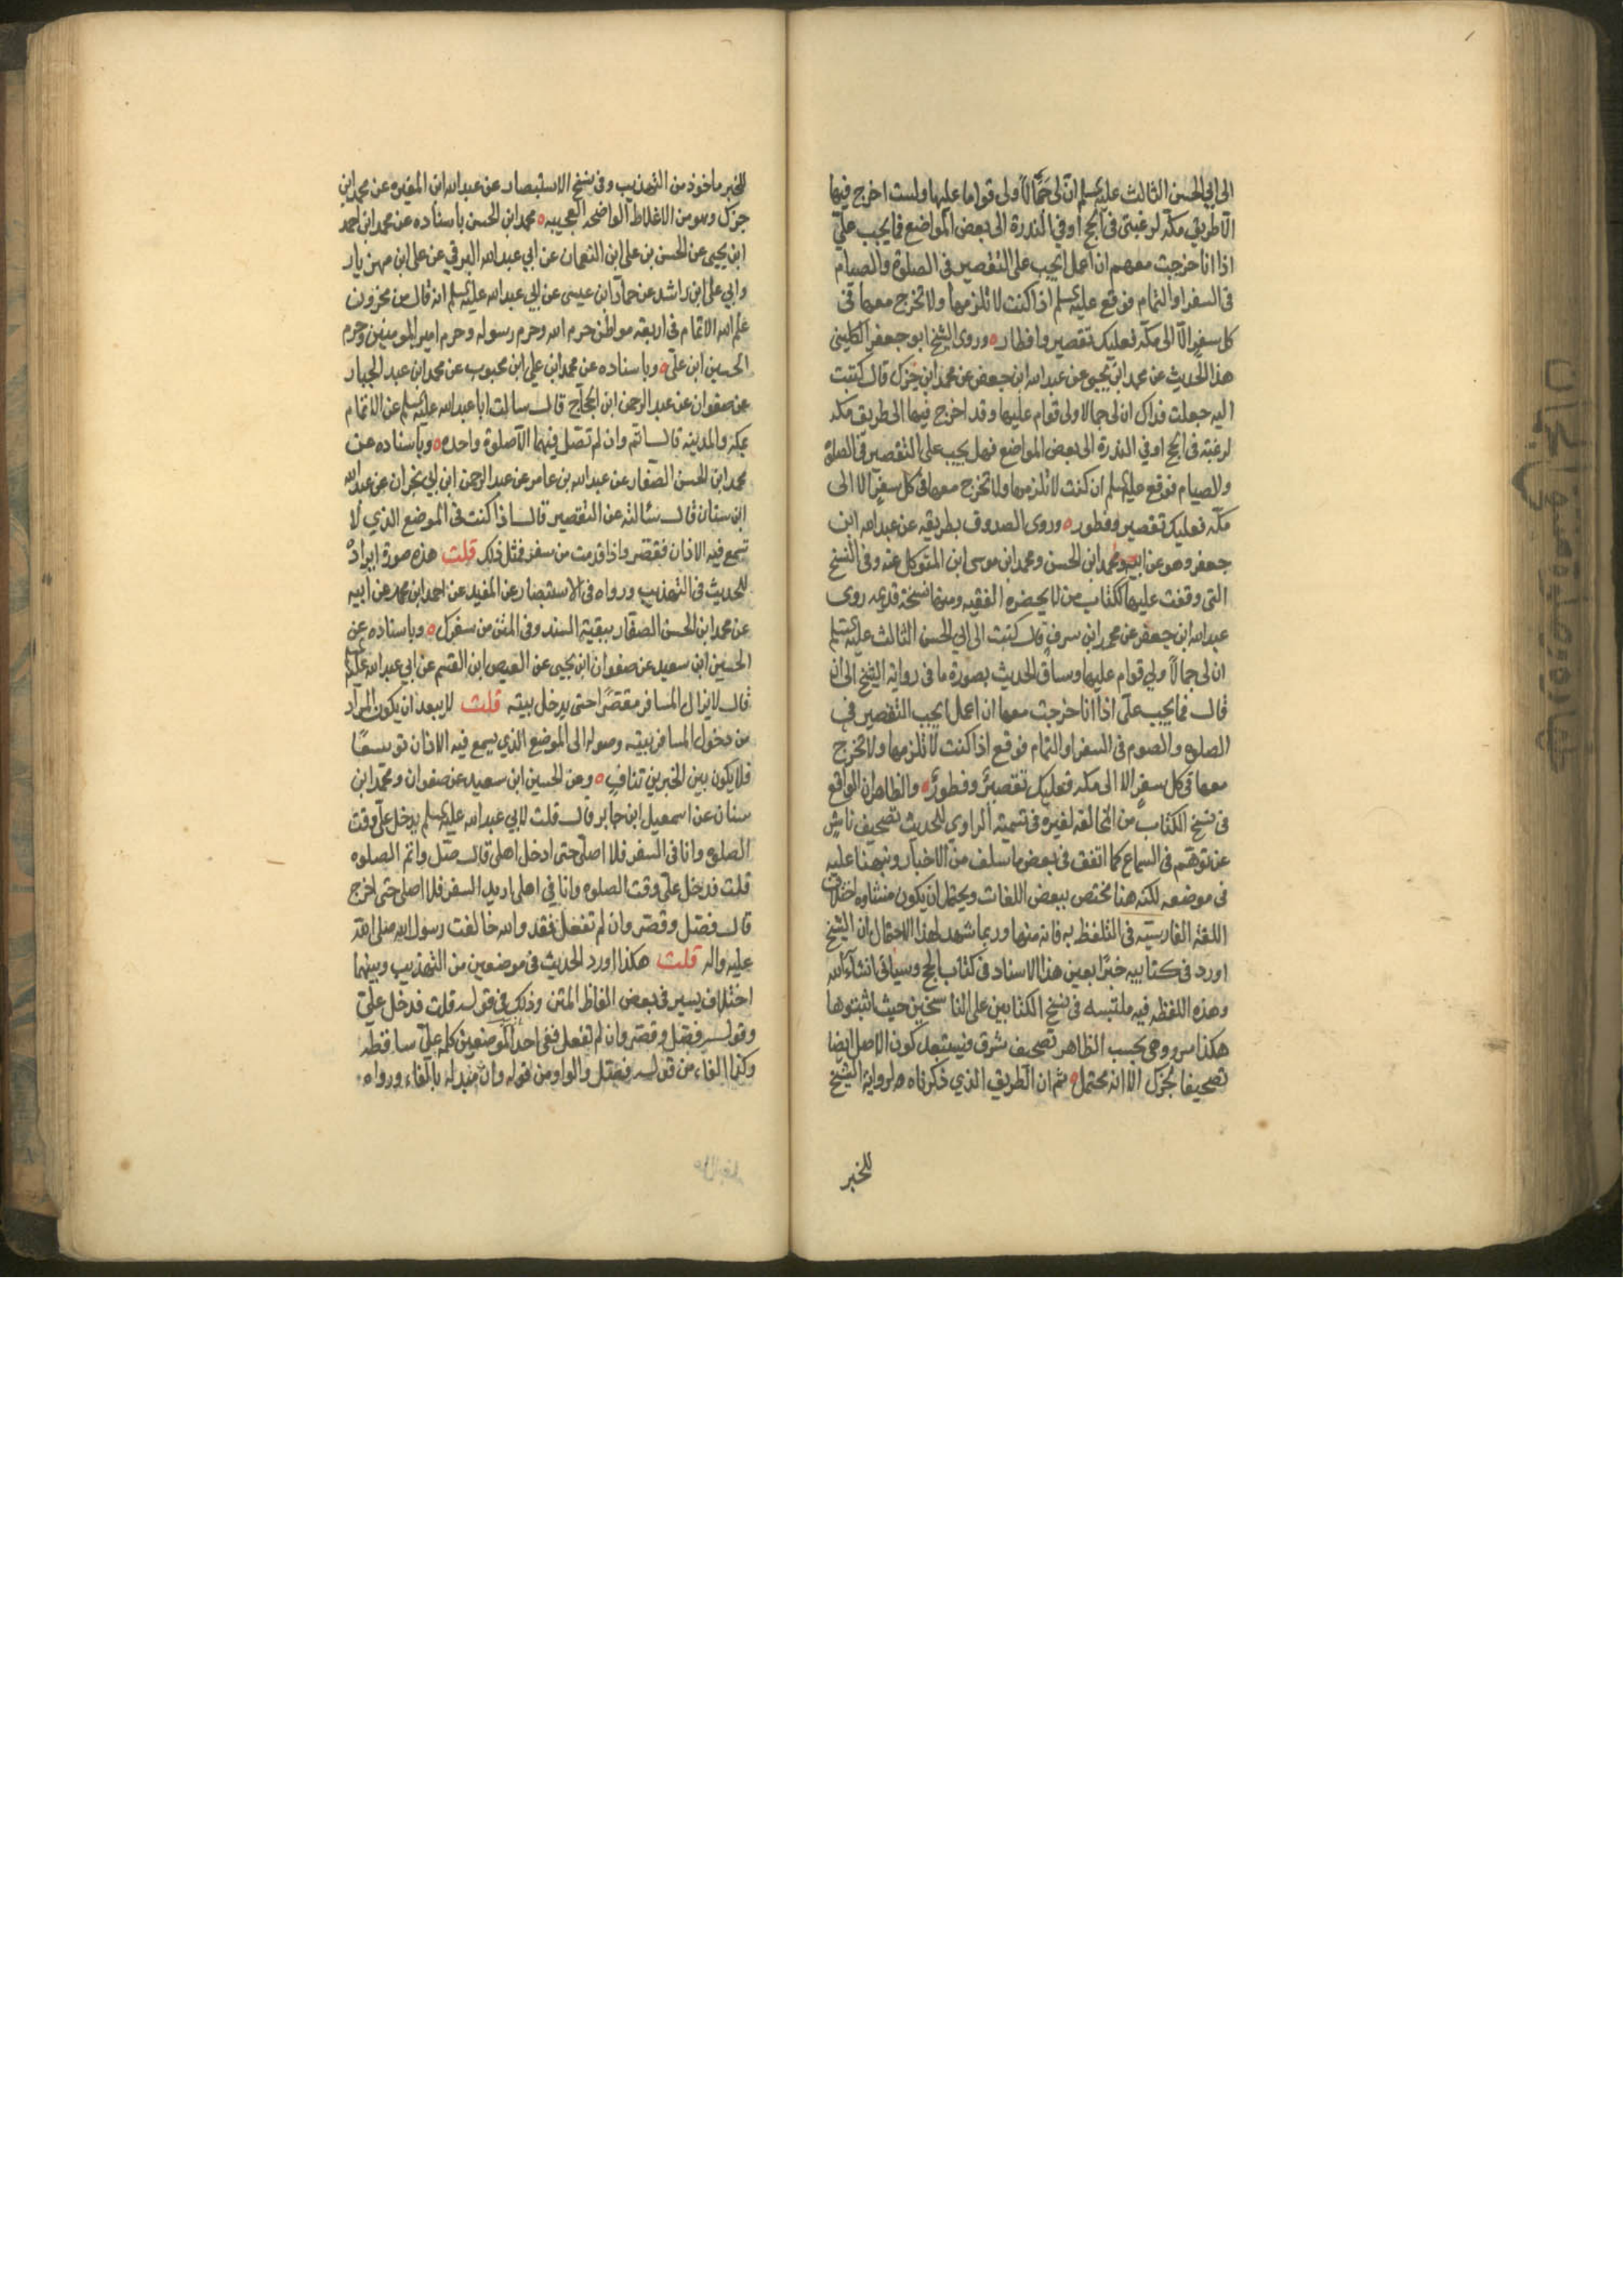 الى ابي الحسن الثالث عليه السلم ان لى جَمَّالاً ولى قواما عليها ولست اخرج فيها
الا طريق مكة لرغبتى فى الحج او في الندرة الى بعض المواضع فما يجب علىّ
اذا انا خرجت معهم ان اعمل ايجب على التقصير فى الصلوة والصيام
فى السفر او التمام فوقع عليه السلم اذا كنت لا تلزمها ولا تخرج معها فى
كل سفر الا الى مكة فعليك تقصير وافطار ه وروى الشيخ ابو جعفر الكلينى
هذا الحديث عن محمد ابن يحيى عن عبد الله ابن جعفر عن محمد ابن جزك قال كتبت
اليه جعلت فداك ان لى جمالا ولى قوام عليها وقد اخرج فيها الى طريق مكه
لرغبة فى الحج او في الندرة الى بعض المواضع فهل يجب على التقصير فى الصلوة
والصيام فوقع عليه السلم ان كنت لا تلزمها ولا تخرج معها فى كل سفر الا الى
مكة فعليك تقصير وفطور ه وروى الصدوق بطريقه عن عبد الله ابن
جعفر وهو عن ابيه ومحمد ابن الحسن ومحمد ابن موسى ابن المتوكل عنه وفى النسخ
التى وقفت عليها لكتاب من لا يحضره الفقيه ومنها نسخة قديمه روى
عبد الله ابن جعفر عن محمد ابن سرف قال كتبت الى ابي الحسن الثالث عليه السلم
ان لى جمالاً ولي قوام عليها وساق الحديث بصورة ما فى رواية الشيخ الى ان
قال فما يجب علىّ اذا انا خرجت معها ان اعمل ايجب التقصير فى
الصلوة والصوم فى السفر او التمام فوقع اذا كنت لا تلزمها ولا تخرج
معها فى كل سفر الا الى مكه فعليك تقصيرٌ وفطورٌ ه والظاهر ان الواقع
فى نسخ الكتاب من المخالفه لغيره فى تسمية الراوى للحديث تصحيف ناش
عن توهم فى السماع كما اتفق فى بعض ما سلف من الاخبار ونبهنا عليه
فى موضعه لكنه هنا مختص ببعض اللغات ويحتمل ان يكون منشاوه اختلاف
اللغة الفارسية فى التلفظ به فانه منها وربما شهد لهذا الاحتمال ان الشيخ
اورد فى كتابيه خبرًا بعين هذا الاسناد فى كتاب الحج وسياتى انشاء الله
وهذه اللفظه فيه ملتبسه فى نسخ الكتابين على الناسخين حيث اثبتوها
هكذا سرو وهى بحسب الظاهر تصحيف سرف فيستبعد كون الاصل ايضا
تصحيفا لجزك الا انه محتمل ه ثم ان الطريق الذي ذكرناه لرواية الشيخ
للخبر
للخبر ماخوذ من التهذيب وفى نسخ الاستبصار عن عبد الله ابن المغيره عن محمد ابن
جزك وهو من الاغلاط الواضحه العجيبه ه محمد ابن الحسن باسناده عن محمد ابن احمد
ابن يحيى عن الحسن بن على ابن النعمان عن ابي عبد الله البرقي عن على ابن مهزيار
وابي على ابن راشد عن حماد ابن عيسى عن ابي عبد الله عليه السلم انه قال من مخزون
علم الله الاتمام فى اربعة مواطن حرم الله وحرم رسوله وحرم امير المومنين وحرم
الحسين ابن علىّ ه وباسناده عن محمد ابن علي ابن محبوب عن محمد ابن عبد الجبار
عن صفوان عن عبد الرحمن ابن الحجاج قال سالت ابا عبد الله عليه السلم عن الاتمام
بمكة والمدينه قال اتم وان لم تصل فيهما الا صلوة واحده ه وباسناده عن
محمد ابن الحسن الصفار عن عبد الله بن عامر عن عبد الرحمن ابن ابي نجران عن عبد الله
ابن سنان قال سئالته عن التقصير قال اذا كنت فى الموضع الذي لا
تسمع فيه الاذان فقصر واذا قدمت من سفر فمثل ذلك قلت هذه صورة ايراد
الحديث فى التهذيب ورواه فى الاستبصار عن المفيد عن احمد ابن محمد عن ابيه
عن محمد ابن الحسن الصفار ببقية السند وفى المتن من سفرك ه وباسناده عن
الحسين ابن سعيد عن صفوان ابن يحيى عن العيص ابن القسم عن ابي عبد الله عليه السلم
قال لا يزال المسافر مقصّرًا حتى يدخل بيته قلت لا يبعد ان يكون المراد
من دخول المسافر بيته وصوله الى الموضع الذي يسمع فيه الاذان توسعًا
فلا يكون بين الخبرين تنافٍ ه وعن الحسين ابن سعيد عن صفوان ومحمد ابن
سنان عن اسمعيل ابن جابر قال قلت لابي عبد الله عليه السلم يدخل علىّ وقت
الصلوة وانا فى السفر فلا اصلى حتى ادخل اهلى قال صل واتم الصلوه
قلت فدخل علىّ وقت الصلوه وانا في اهلى اريد السفر فلا اصلى حتى اخرج
قال فصل وقصر وان لم تفعل فقد والله خالفت رسول الله صلى الله
عليه واله قلت هكذا اورد الحديث فى موضعين من التهذيب وبينهما
اختلاف يسير فى بعض الفاظ المتن وذلك فى قوله قلت فدخل علىّ
وقوله فصل وقصر وان لم تفعل ففى احد الموضعين كلمة علىّ ساقطه
وكذا الفاء من قوله فصل والواو من قوله وان مبدله بالفاء ورواه